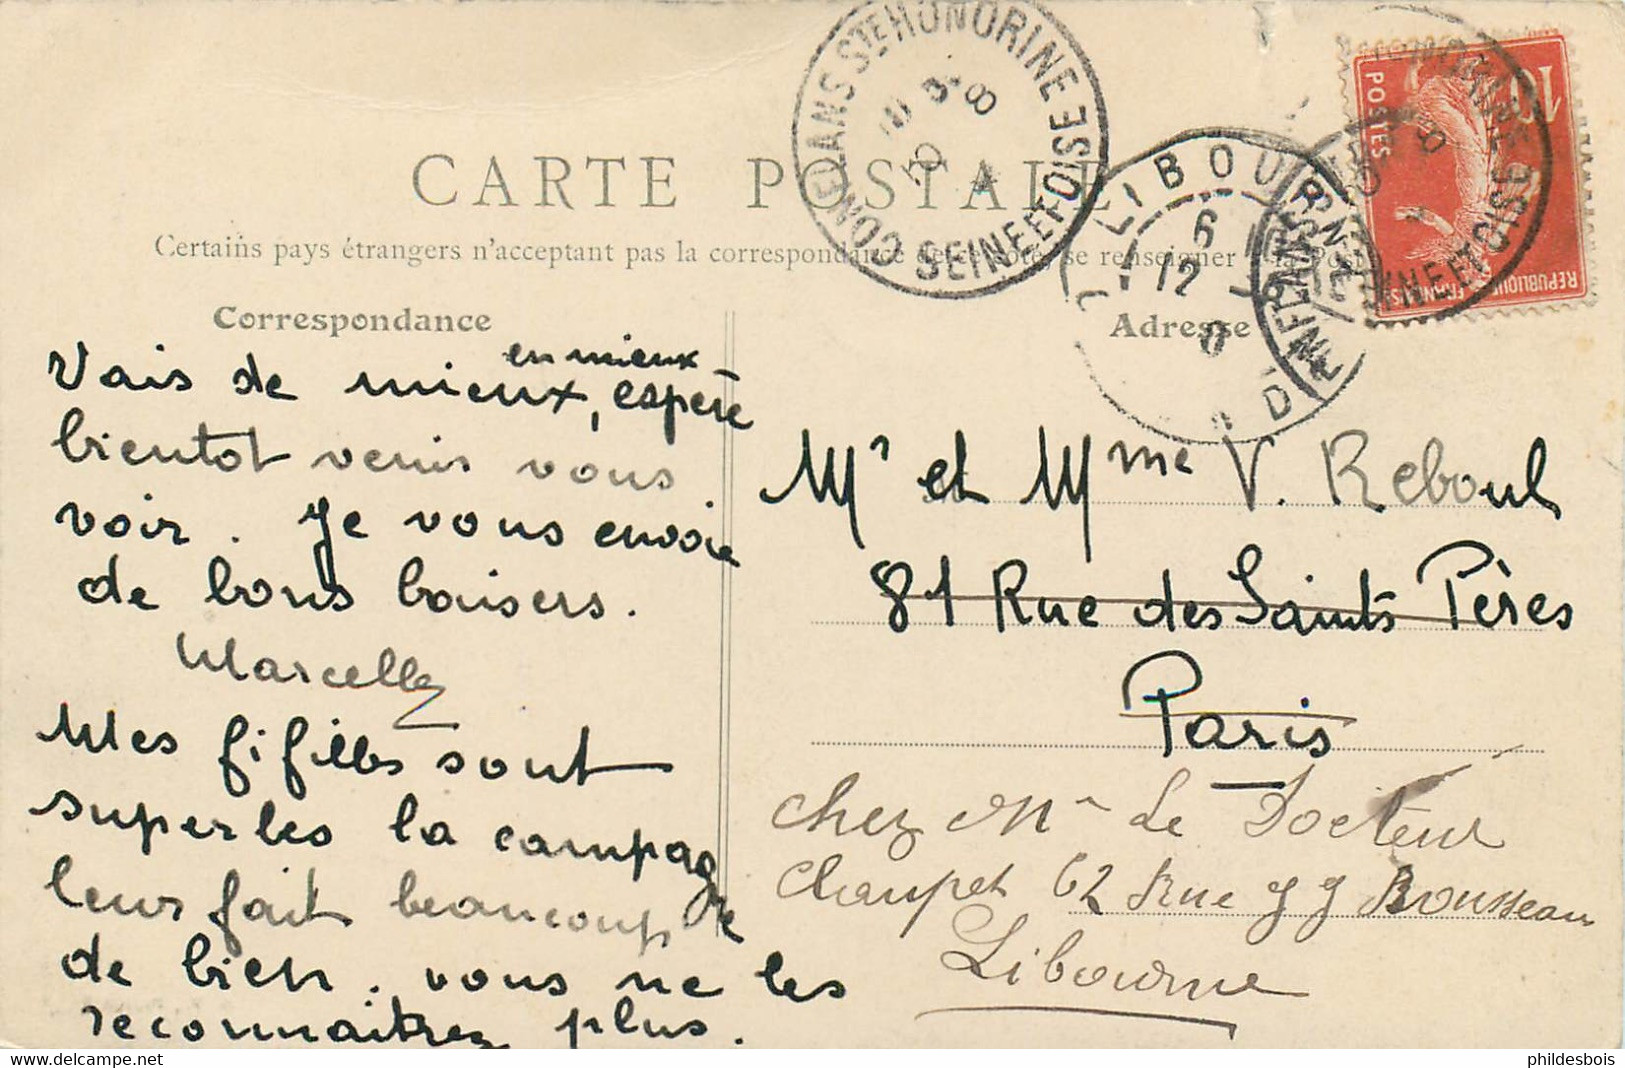 CARTE POSTALE
Certains pays étrangers n'acceptant pas la correspondance de ce côté, se renseigner à la Poste
Correspondance
Adresse
CONFLANS Ste HONORINE
SEINE ET OISE
LIBOURNE
6
12
10
POSTES
REPUBLIQUE FRANÇAISE
Vais de mieux en mieux, espère
bientot venir vous
voir. Je vous envoie
de bons baisers.
Marcelle
Mes fifilles sont
superbes la campagne
leur fait beaucoup
de bien. vous ne les
reconnaitrez plus.
Mr et Mme V. Reboul
81 Rue des Saints Pères
Paris
chez Mr Le Docteur
Chaupet 62 Rue J J Rousseau
Libourne
phildesbois